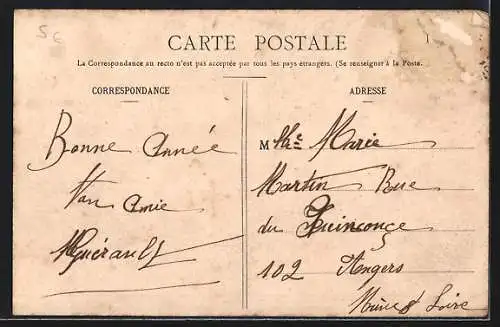 5c
CARTE POSTALE
La Correspondance au recto n'est pas acceptée par tous les pays étrangers. (Se renseigner à la Poste.
CORRESPONDANCE
Bonne Année
Amie
Guérault
ADRESSE
M Marie
Martin Rue
du Quinconce
102 Angers
Loire